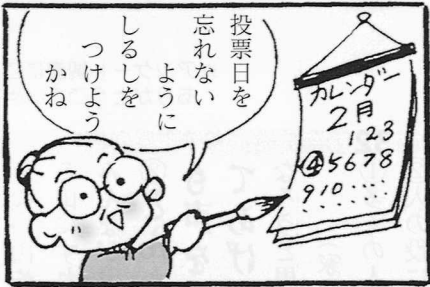 投票日を
忘れない
ように
しるしを
つけよう
かね
カレンダー
2月
1 2 3
④ 5 6 7 8
9 10 ・・・・